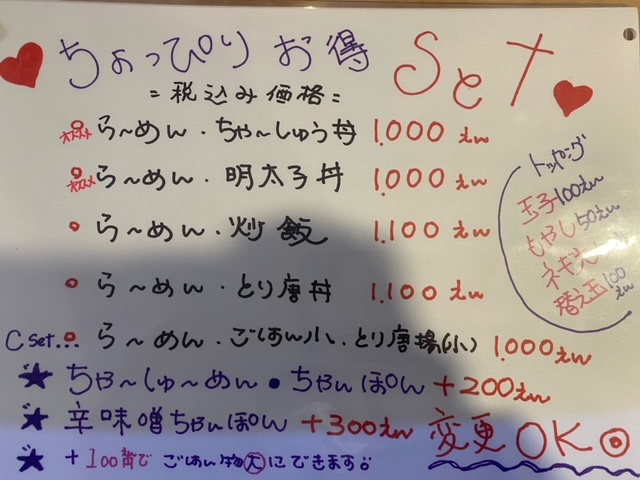 ちょっぴり お得 Sとt
=税込み価格=
オススメ らーめん・ちゃーしゅう丼 1.000えん
オススメ らーめん・明太子丼 1.000えん
らーめん・炒飯 1.100えん
らーめん・とり唐丼 1.100えん
Cset... らーめん・ごはん小・とり唐揚(小) 1.000えん
トッピング
玉子100えん
もやし50えん
ネギ
替え玉100えん
★ちゃーしゅーめん・ちゃんぽん+200えん
★辛味噌ちゃんぽん+300えん 変更OK◎
★+100えんで ごはん物大にできます。